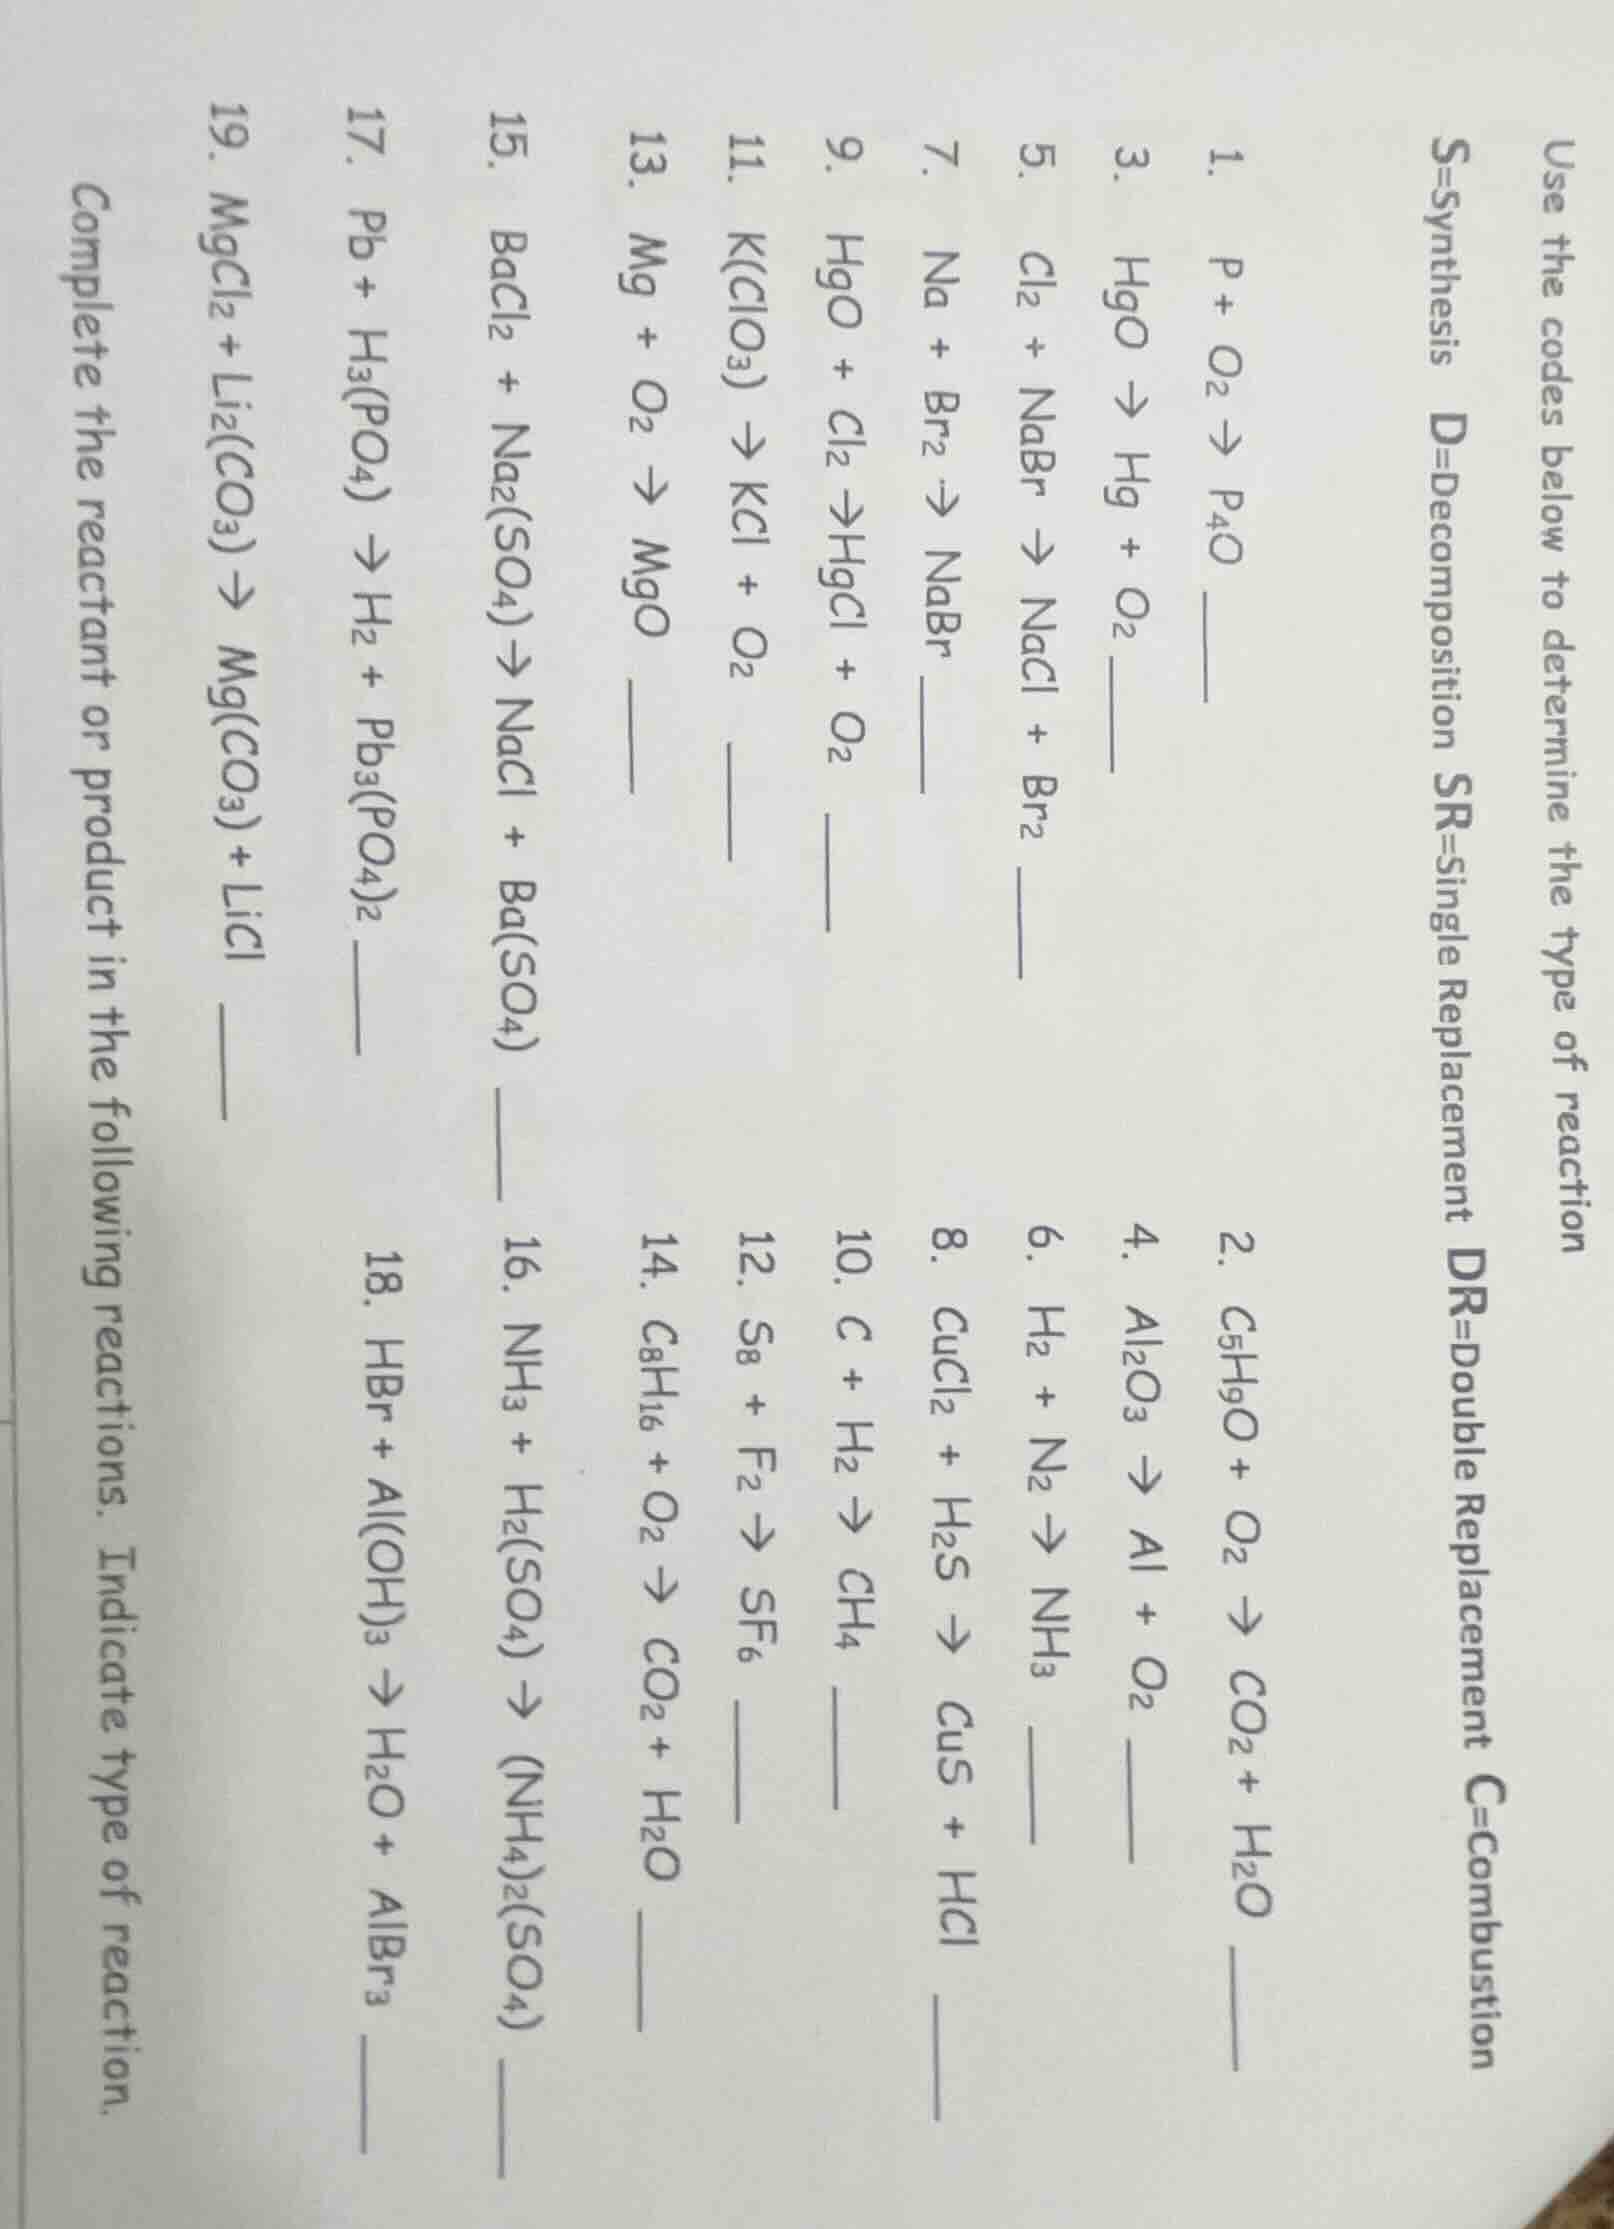 Use the codes below to determine the type of reaction
S=Synthesis D=Decomposition SR=Single Replacement DR=Double Replacement C=Combustion
1. P + O₂ → P₄O ____ 2. C₅H₉O + O₂ → CO₂ + H₂O ____
3. HgO → Hg + O₂ ____ 4. Al₂O₃ → Al + O₂ ____
5. Cl₂ + NaBr → NaCl + Br₂ ____ 6. H₂ + N₂ → NH₃ ____
7. Na + Br₂ → NaBr ____ 8. CuCl₂ + H₂S → CuS + HCl ____
9. HgO + Cl₂ →HgCl + O₂ ____ 10. C + H₂ → CH₄ ____
11. K(ClO₃) → KCl + O₂ ____ 12. S₈ + F₂ → SF₆ ____
13. Mg + O₂ → MgO ____ 14. C₈H₁₆ + O₂ → CO₂ + H₂O ____
15. BaCl₂ + Na₂(SO₄) → NaCl + Ba(SO₄) ____ 16. NH₃ + H₂(SO₄) → (NH₄)₂(SO₄) ____
17. Pb + H₃(PO₄) → H₂ + Pb₃(PO₄)₂ ____ 18. HBr + Al(OH)₃ → H₂O + AlBr₃ ____
19. MgCl₂ + Li₂(CO₃) → Mg(CO₃) + LiCl ____
Complete the reactant or product in the following reactions. Indicate type of reaction.